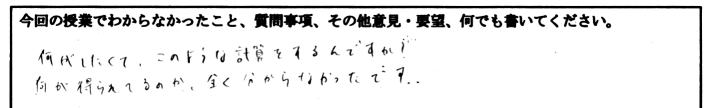 今回の授業でわからなかったこと、質問事項、その他意見・要望、何でも書いてください。
何がしたくて、このような計算をするんですか?
何が得られてるのか、全く分からなかったです..